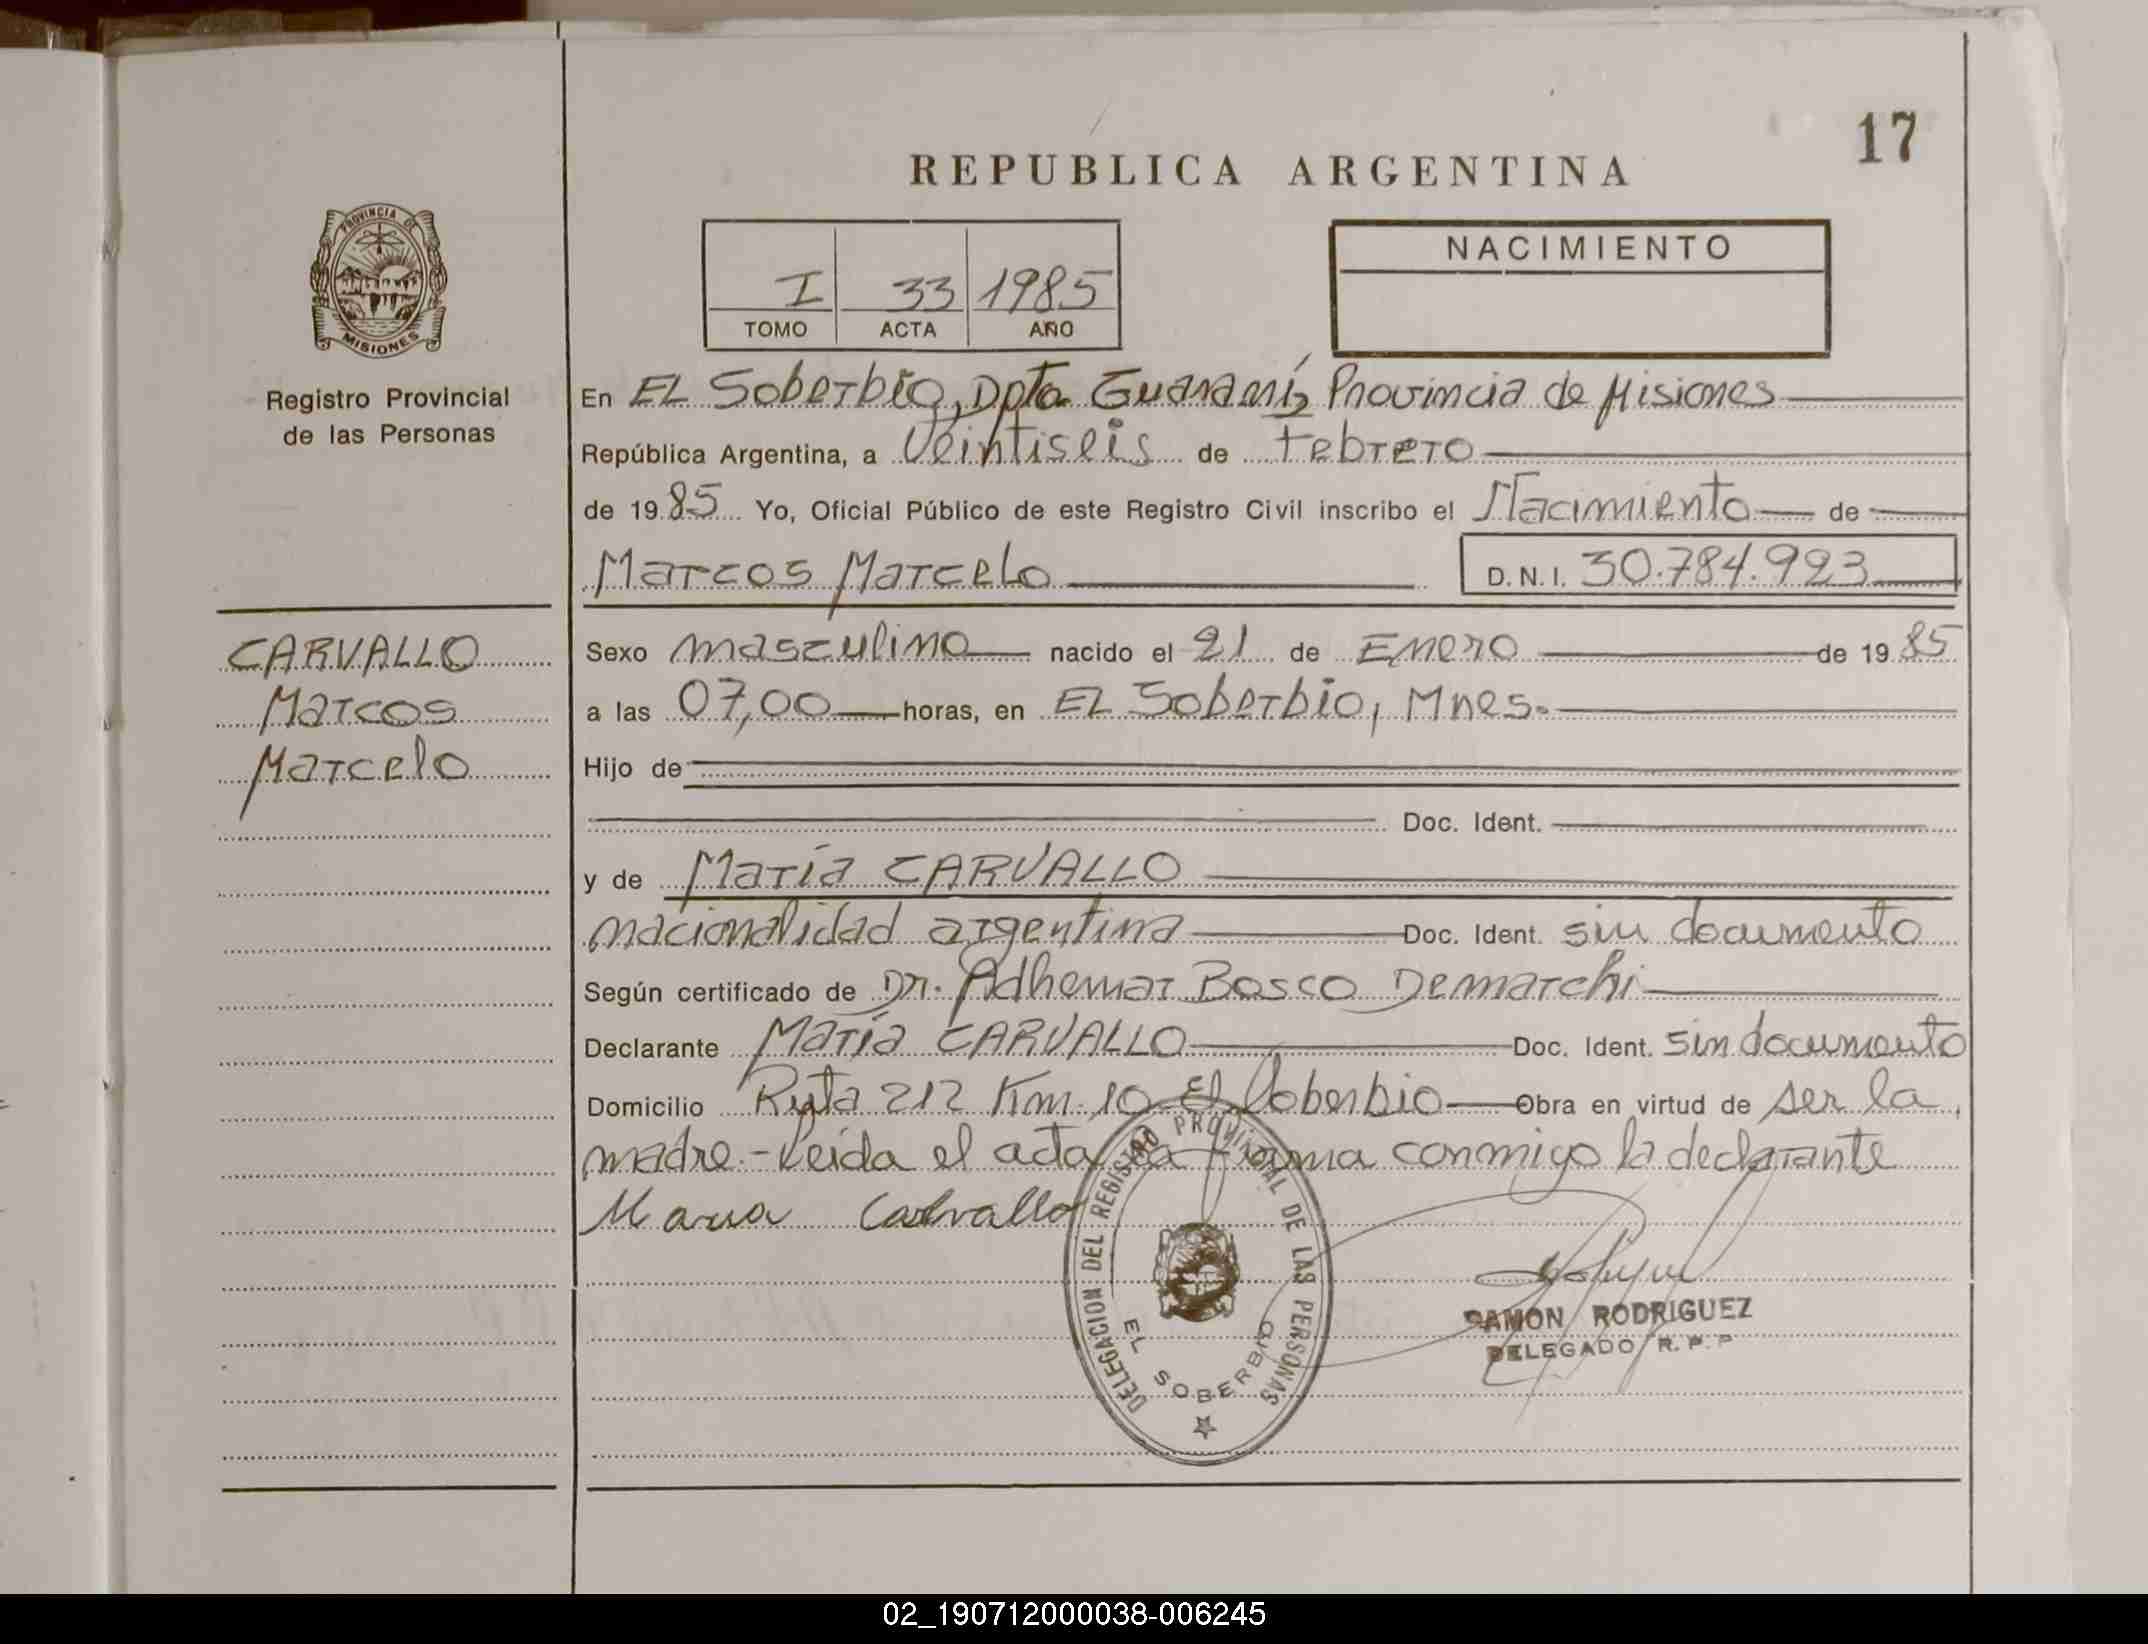 17
REPUBLICA ARGENTINA
PROVINCIA DE
MISIONES
Registro Provincial
de las Personas
I 33 1985
TOMO ACTA AÑO
NACIMIENTO
En EL Soberbio, Dpto Guaraní, Provincia de Misiones
República Argentina, a Veintiseis de Febrero
de 1985 Yo, Oficial Público de este Registro Civil inscribo el Nacimiento de
Marcos Marcelo D.N.I. 30.784.923
CARVALLO
Marcos
Marcelo
Sexo masculino nacido el 21 de Enero de 1985
a las 07,00 horas, en EL Soberbio, Mnes.
Hijo de
Doc. Ident.
y de María CARVALLO
nacionalidad argentina Doc. Ident. sin documento
Según certificado de Dr. Adhemar Bosco Demarchi
Declarante María CARVALLO Doc. Ident. sin documento
Domicilio Ruta 212 Km. 10 El Soberbio Obra en virtud de ser la
madre.- Leida el acta la firma conmigo la declarante
Maria Carvallo
DELEGACION DEL REGISTRO PROVINCIAL DE LAS PERSONAS
EL SOBERBIO
RAMON RODRIGUEZ
DELEGADO R.P.P
02_190712000038-006245